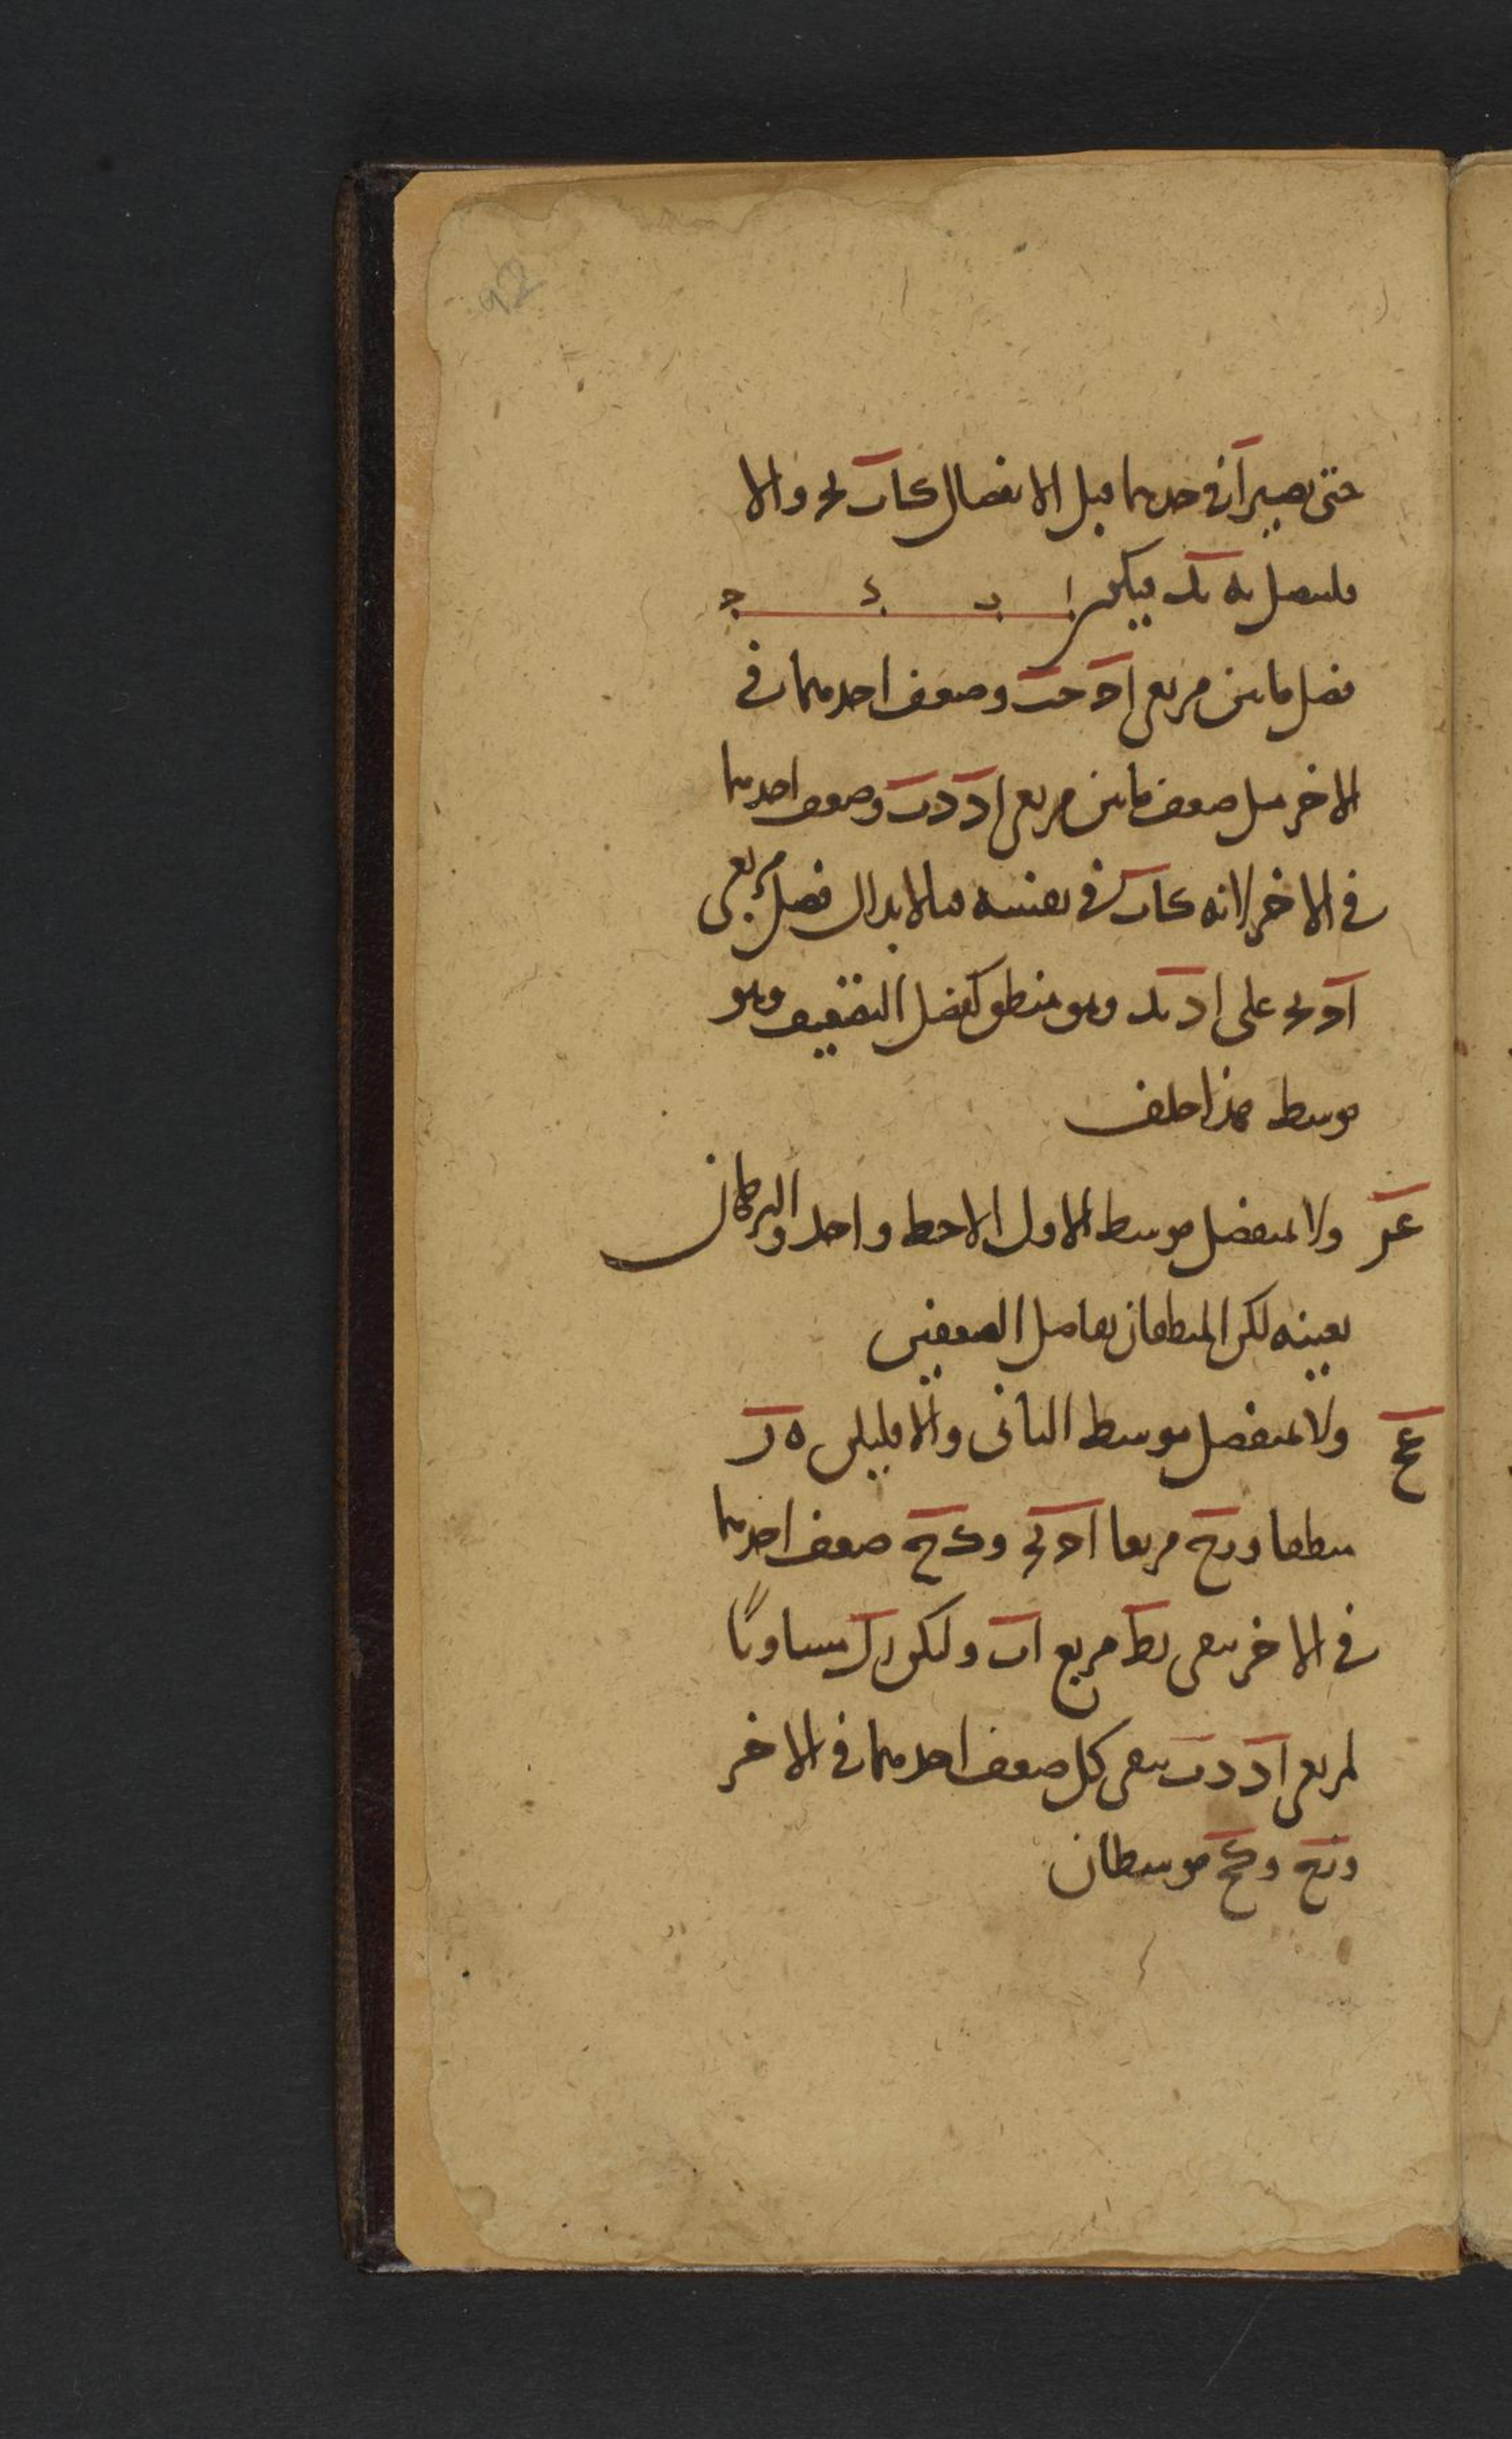 حتى يصير آ في حدهما قبل الانفصال كاب بج والا
فليتصل به بد فيكن ا ب د ج
فضل ما بين مربعي اج جب وضعف احدهما في
الاخر مثل ضعف ما بين مربعي اد دب وضعف احدهما
في الاخر لانه كاب في نفسه فبالابدال فضل مربعي
اج بج على اد بد وهو منطق كفضل التضعيف وهو
موسط هذا خلف
عز ولا بمنفصل موسط الاول الا خط واحد والبرهان
بعينه لكن المنطقان تفاضل الضعفين
عح ولا بمنفصل موسط الثاني والا فليكن ه ز
منطقا وزح مربعا اج بج وكح ضعف احدهما
في الاخر يبقى مربع اب وليكن زل مساويا
لمربعي اد دب يبقى كل ضعف احدهما في الاخر
وزح وكح موسطان